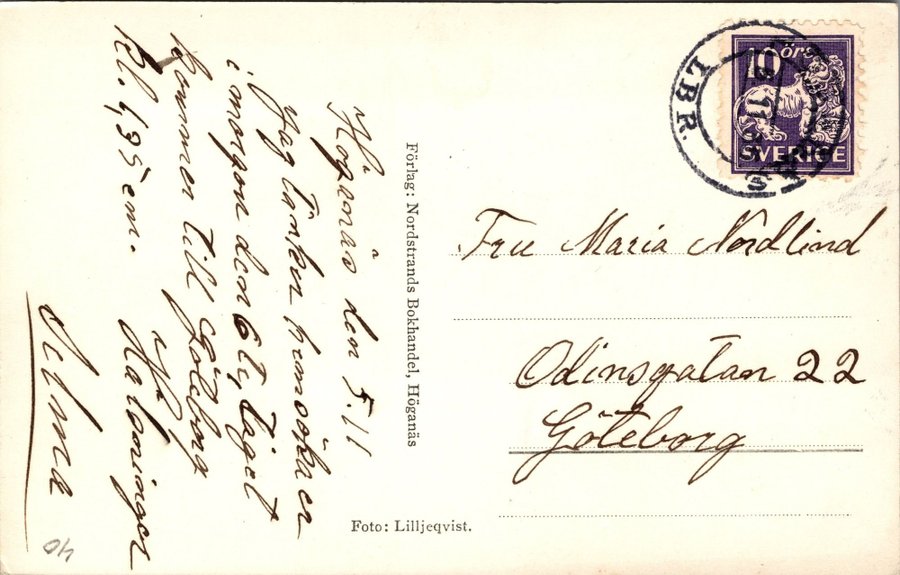 Höganäs den 5.11
Jag tänker hemsöka er
i morgon den 6te, Tåget
kommer till Göteborg
Kl. 1,35 em.
Hälsningar
Selma
Förlag: Nordstrands Bokhandel, Höganäs
Foto: Lilljeqvist.
10 öre
SVERIGE
LBR.
Fru Maria Nordlind
Odinsgatan 22
Göteborg
40